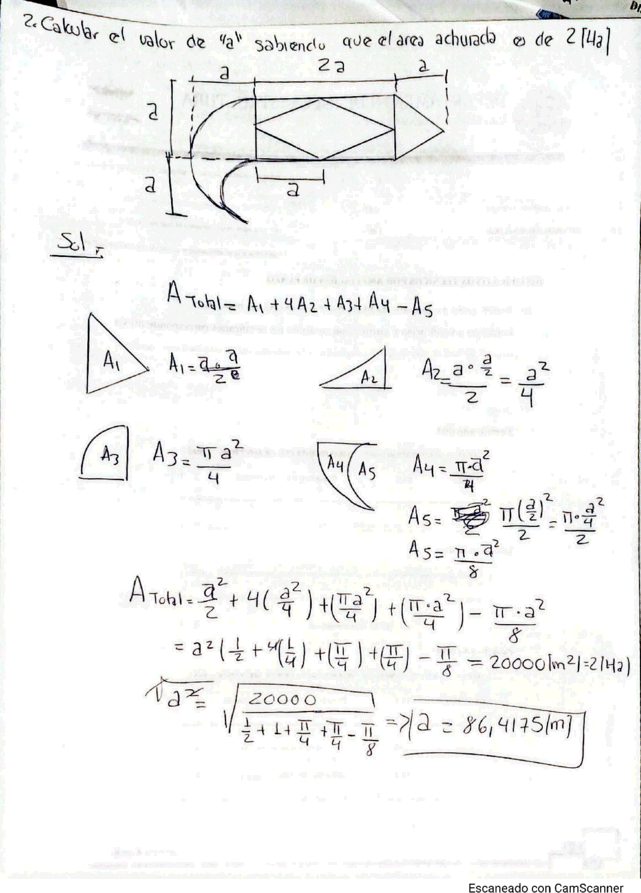 2. Calcular el valor de "a" sabiendo que el area achurada es de 2 [Ha]
a 2a a
a
a
a
Sol =
A Total = A1 + 4A2 + A3 + A4 - A5
A1 A1 = a·a/2
A2 A2 = a·a/2/2 = a²/4
A3 A3 = πa²/4
A4 A5 A4 = π·a²/4
A5 = π(a/2)²/2 = π·a²/4/2
A5 = π·a²/8
A Total = a²/2 + 4(a²/4) + (πa²/4) + (π·a²/4) - π·a²/8
= a²(1/2 + 4(1/4) + (π/4) + (π/4) - π/8 = 20000[m²]=2[Ha]
√a² = √20000/1/2+1+π/4+π/4-π/8 => a = 86,4175[m]
Escaneado con CamScanner